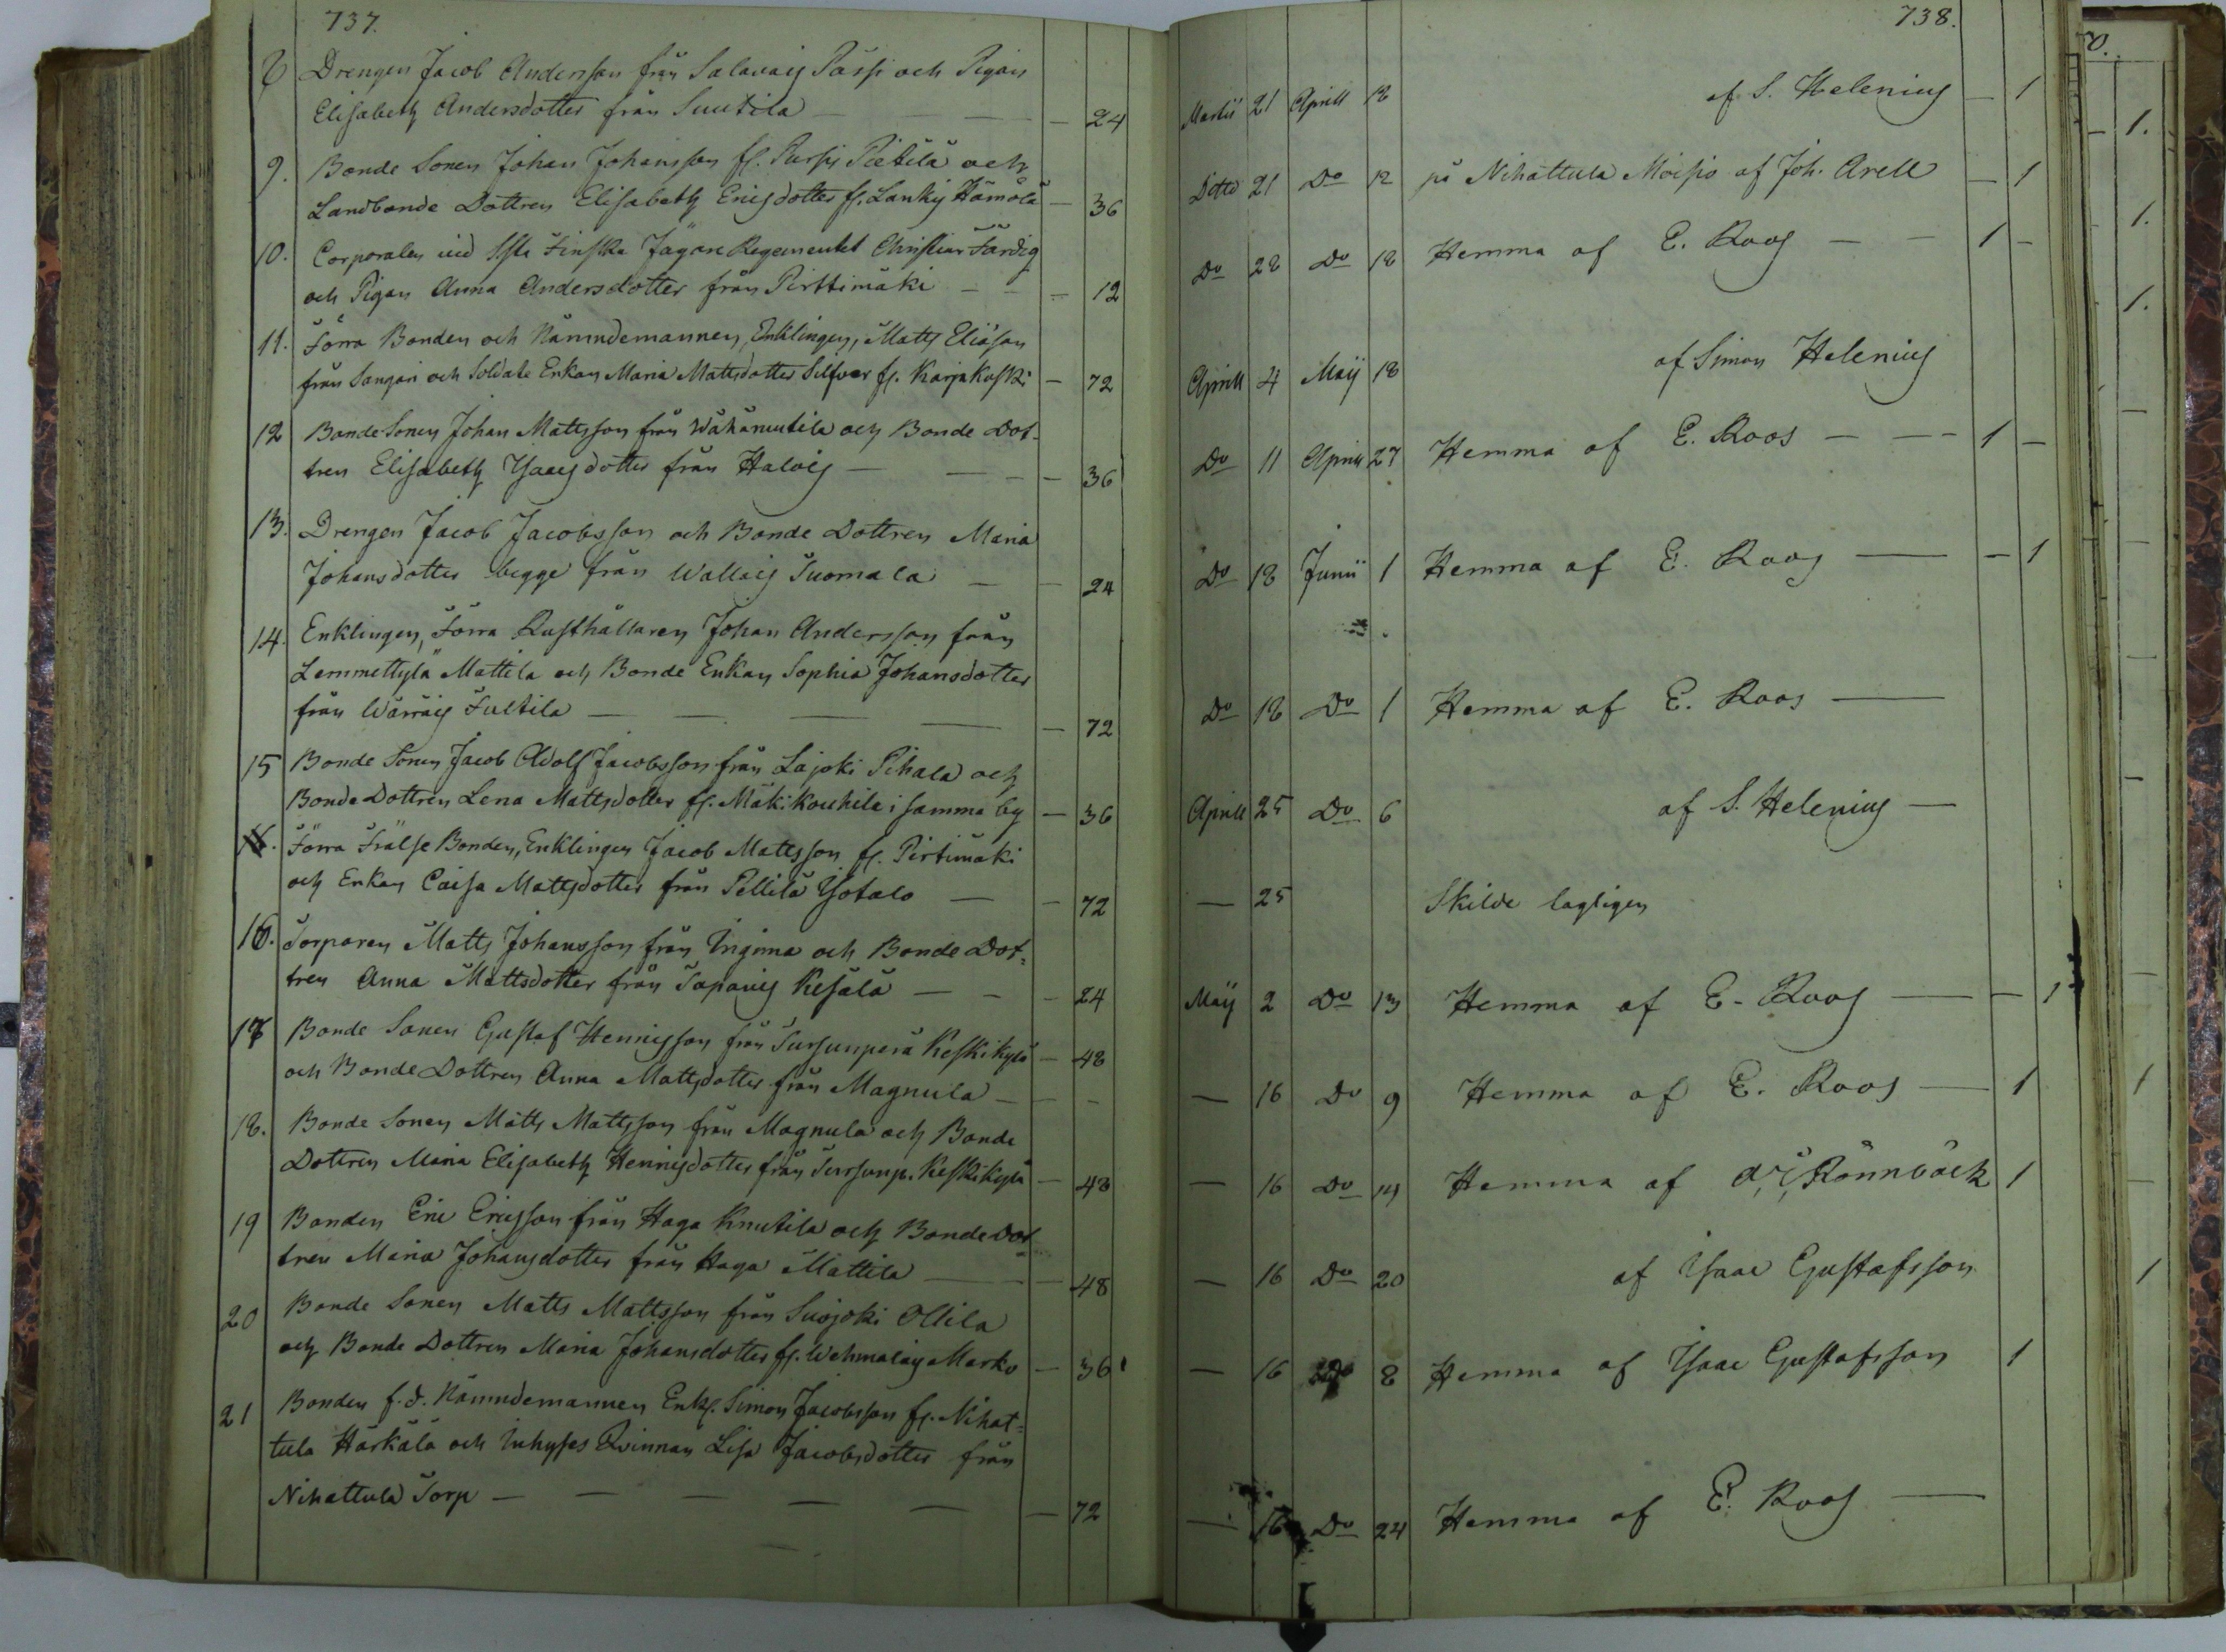 737.
8 Drengen Jacob Andersson från Salavais Passi och Pigan
Elisabeth Andersdotter från Suutila — — — 24
9. Bonde Sonen Johan Johansson fr. Pursis Pietilä och
Landbonde Dottren Elisabeth Ericsdotter fr. Lankis Hämölä — 36
10. Corporalen vid 1sta Finska Jägare Regementet Christian Färdig
och Pigan Anna Andersdotter från Pirttimäki — — — 12
11. Förra Bonden och Nämndemannen, Enklingen, Matts Eliasson
från Sangari och Soldate Enkan Maria Mattsdotter Silfver fr. Karjakoski — 72
12 Bonde Sonen Johan Mattsson från Wähänuutila och Bonde Dot-
tren Elisabeth Isaacsdotter från Halois — — — — 36
13. Drengen Jacob Jacobsson och Bonde Dottren Maria
Johansdotter begge från Wallais Tuomala — — 24
14. Enklingen, Förra Rusthållaren Johan Andersson från
Lemmettylä Mattila och Bonde Enkan Sophia Johansdotter
från Wärräis Fultila — — — — — 72
15 Bonde Sonen Jacob Adolf Jacobsson från Lajoki Pihala och
Bonde Dottren Lena Mattsdotter fr. Mäkikouhila i samma by — 36
16. Förra Frälse Bonden, Enklingen Jacob Mattsson fr. Pirtimäki
och Enkan Caisa Mattsdotter från Pellilä Isotalo — — 72
16. Torparen Matts Johansson från Ingina och Bonde Dot-
tren Anna Mattsdotter från Tapanis Kesälä — — — 24
17 Bonde Sonen Gustaf Hennisson från Sursunperä Keskikylä — 48
och Bonde Dottren Anna Mattsdotter från Magnula — — —
18. Bonde Sonen Matts Mattsson från Magnula och Bonde
Dottren Maria Elisabeth Hennisdotter från Sursunp. Keskikylä — 48
19 Bonden Eric Ericsson från Haga Knutila och Bonde Dot-
tren Maria Johansdotter från Haga Mattila — — 48
20 Bonde Sonen Matts Mattsson från Suojoki Ollila
och Bonde Dottren Maria Johansdotter fr. Wehmalais Marko — 36
21 Bonden f.d. Nämndemannen Enkl. Simon Jacobsson fr. Nihat-
tula Härkälä och Inhyses Qvinnan Lisa Jacobsdotter från
Nihattula Torp — — — — — — 72
738.
Martii 21 Aprill 18 af S. Helenius — 1
Ditto 21 Do 12 på Nihattula Moisio af Joh. Arell — 1
Do 28 Do 18 Hemma af E. Roos — — 1 —
Aprill 4 Maij 18 af Simon Helenius
Do 11 Aprill 27 Hemma af E. Roos — — — 1 —
Do 18 Junii 1 Hemma af E. Roos — — 1
Do 18 Do 1 Hemma af E. Roos —
Aprill 25 Do 6 af S. Helenius —
— 25 Skilde lagligen
Maij 2 Do 13 Hemma af E. Roos — — 1
— 16 Do 9 Hemma af E. Roos — 1
— 16 Do 14 Hemma af Rönnbäck 1
— 16 Do 20 af Isaac Gustafsson
— 16 Do 8 Hemma af Isaac Gustafsson 1
— 16 Do 24 Hemma af E. Roos —